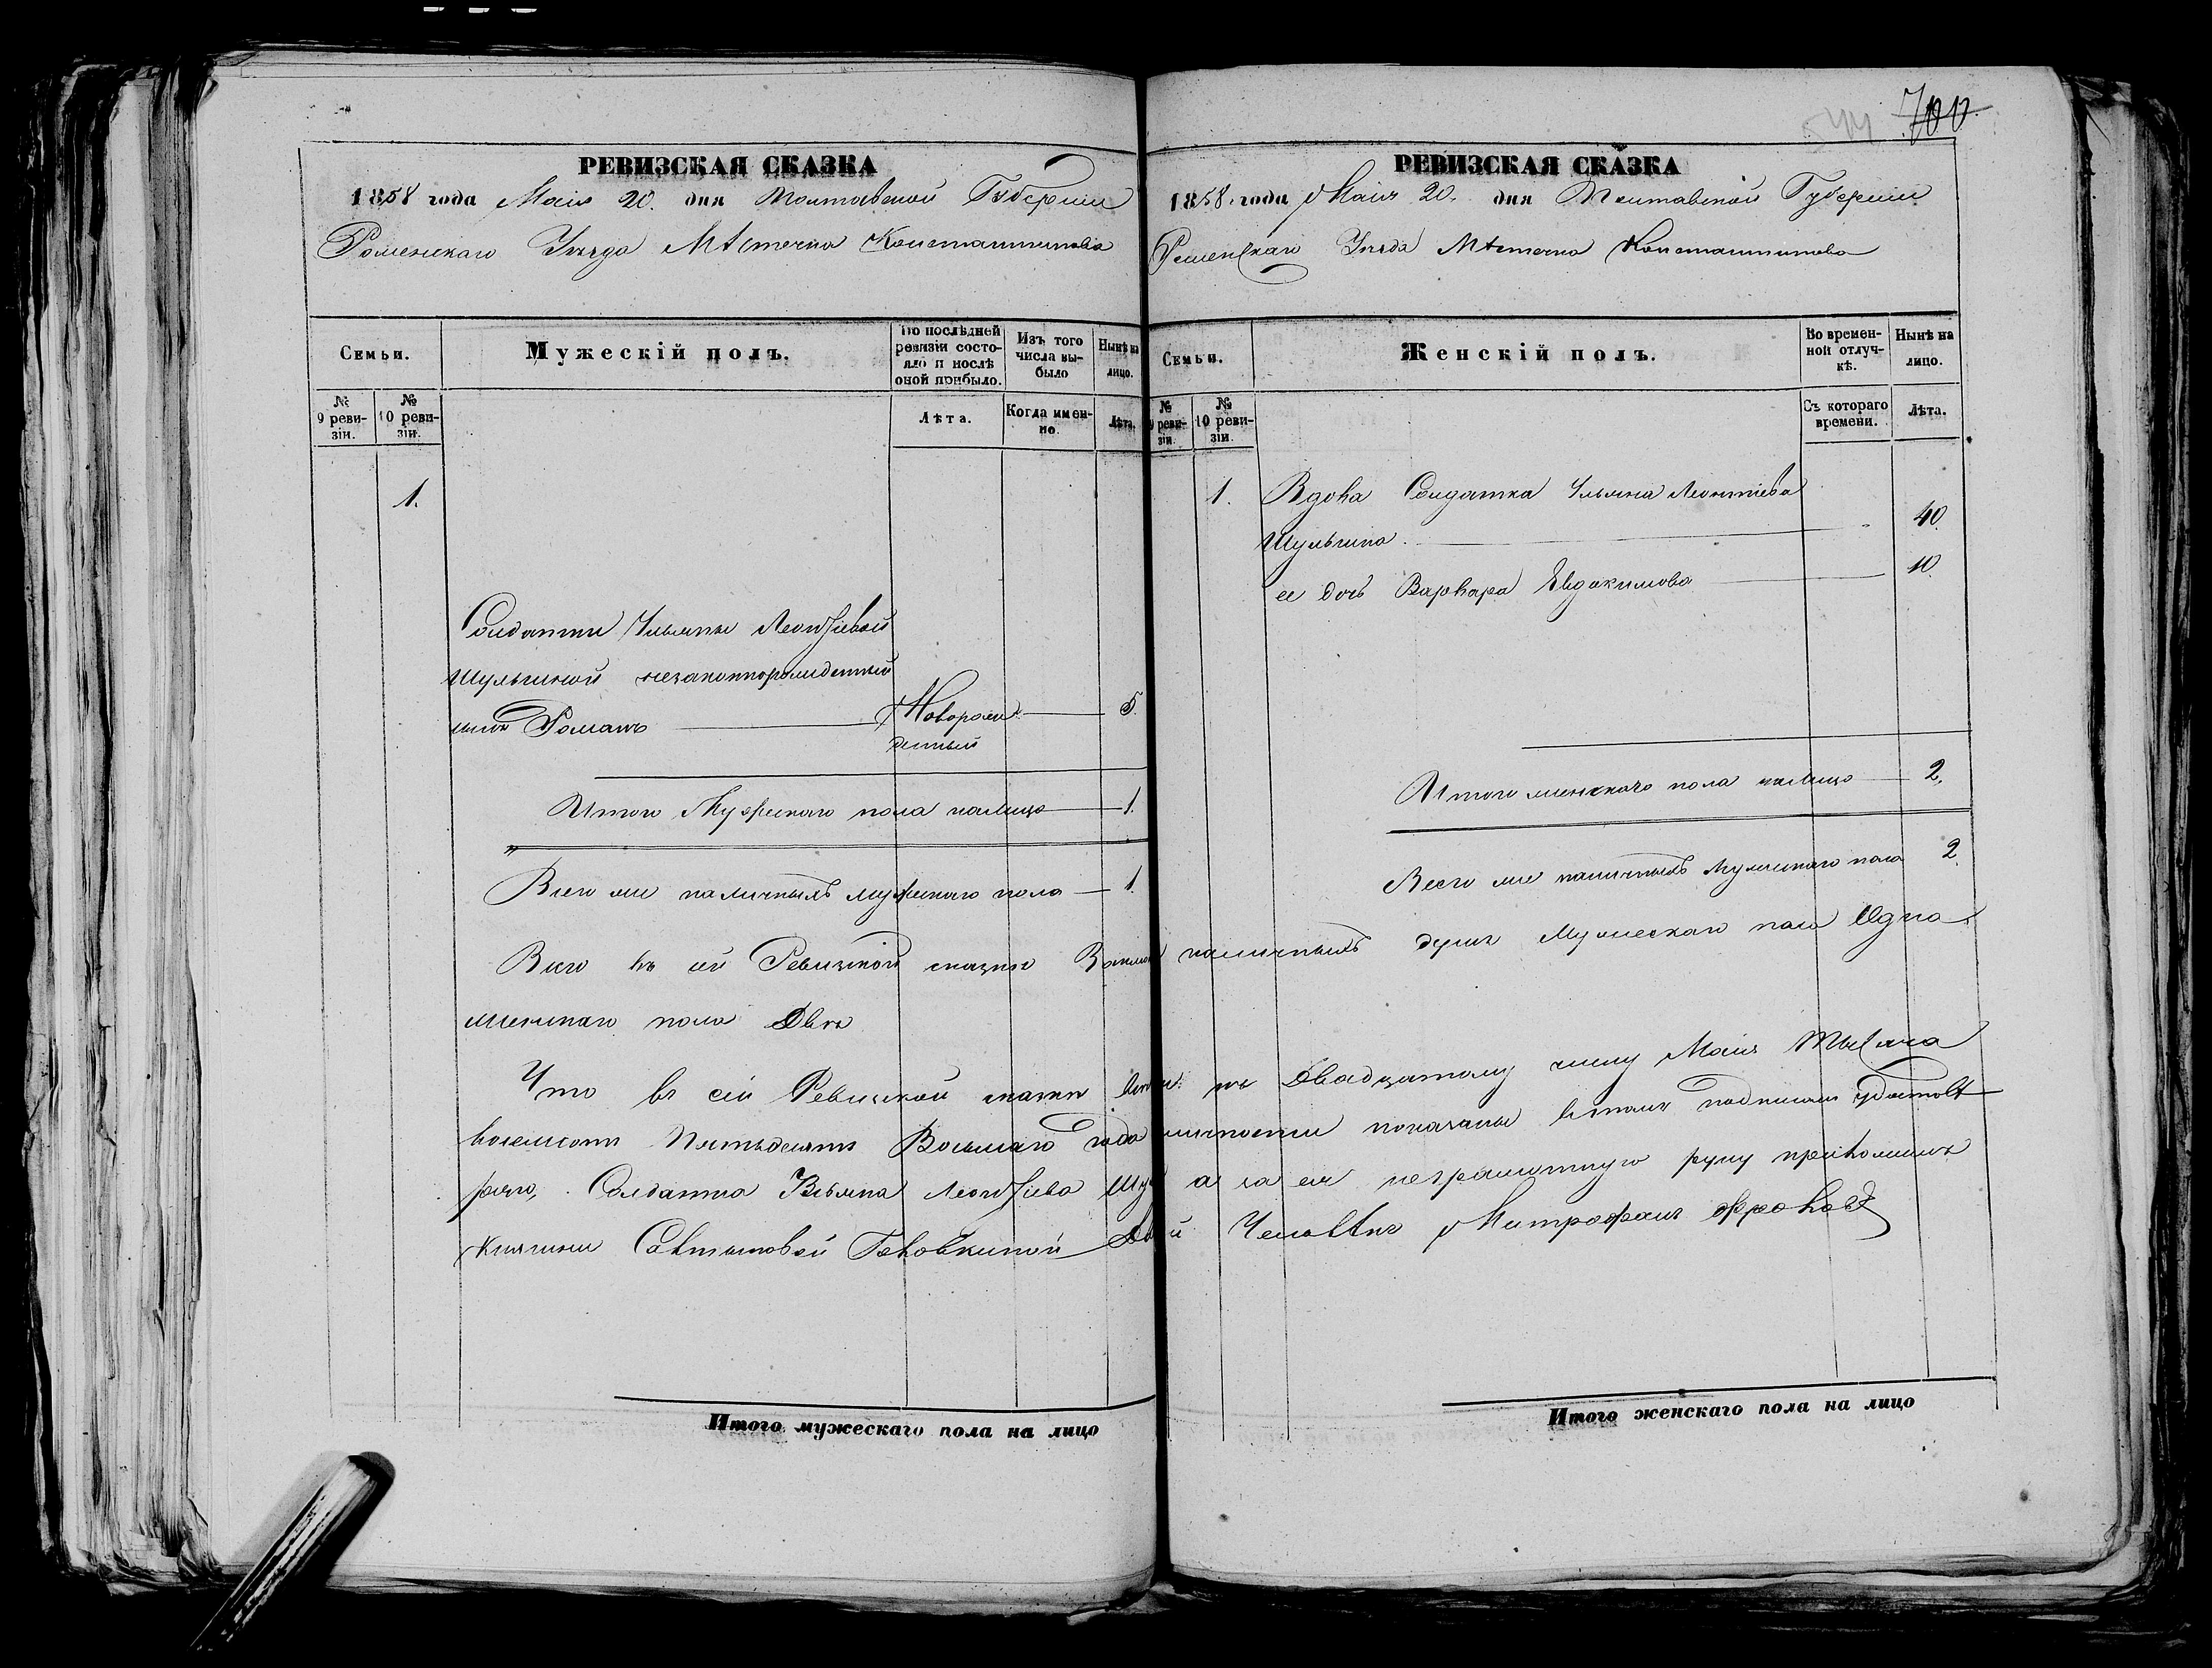 700
РЕВИЗСКАЯ СКАЗКА
1858 года Маія 20. дня Полтавской Губерніи
Роменскаго Уѣзда Мѣстечка Константинова
Семьи.
Мужескій полъ.
По послѣдней ревизіи состояло и послѣ оной прибыло.
Изъ того числа выбыло
Нынѣ на лицо.
№ 9 ревизіи.
№ 10 ревизіи.
Лѣта.
Когда именно.
Лѣта.
1.
Солдатки Ульяны Леонтіевой
Шульгиной незаконнорожденный
сынъ Романъ Новорож 5.
денный
Итого Мужескаго пола налицо 1.
Всего же наличныхъ мужескаго пола 1.
РЕВИЗСКАЯ СКАЗКА
1858. года Маія 20. дня Полтавской Губерніи
Роменскаго Уѣзда Мѣстечка Константинова
Семьи.
Женскій полъ.
Во временной отлучкѣ.
Нынѣ на лицо.
№ 9 ревизіи.
№ 10 ревизіи.
Съ котораго времени.
Лѣта.
1. Вдова Солдатка Ульяна Леонтіева
Шульгина. 40.
ее дочь Варвара Евдокимова 10.
Итого женскаго пола налицо 2.
Всего же наличныхъ Мужескаго пола 2.
Всего въ сей Ревизской сказки наличныхъ душъ Мужескаго пола Одна
женскаго пола Двѣ
Что въ сей Ревизской сказки къ Двадцатому числу Маія Тысяча
восемсотъ Пятьдесятъ Восьмаго года показаны въ томъ подписом удостовѣ
ряю, Солдатка Ульяна Леонтіева а за ея неграмотную руку приложилъ
Княгини Головкиной Человѣкъ Митрофанъ
Итого мужескаго пола на лицо
Итого женскаго пола на лицо